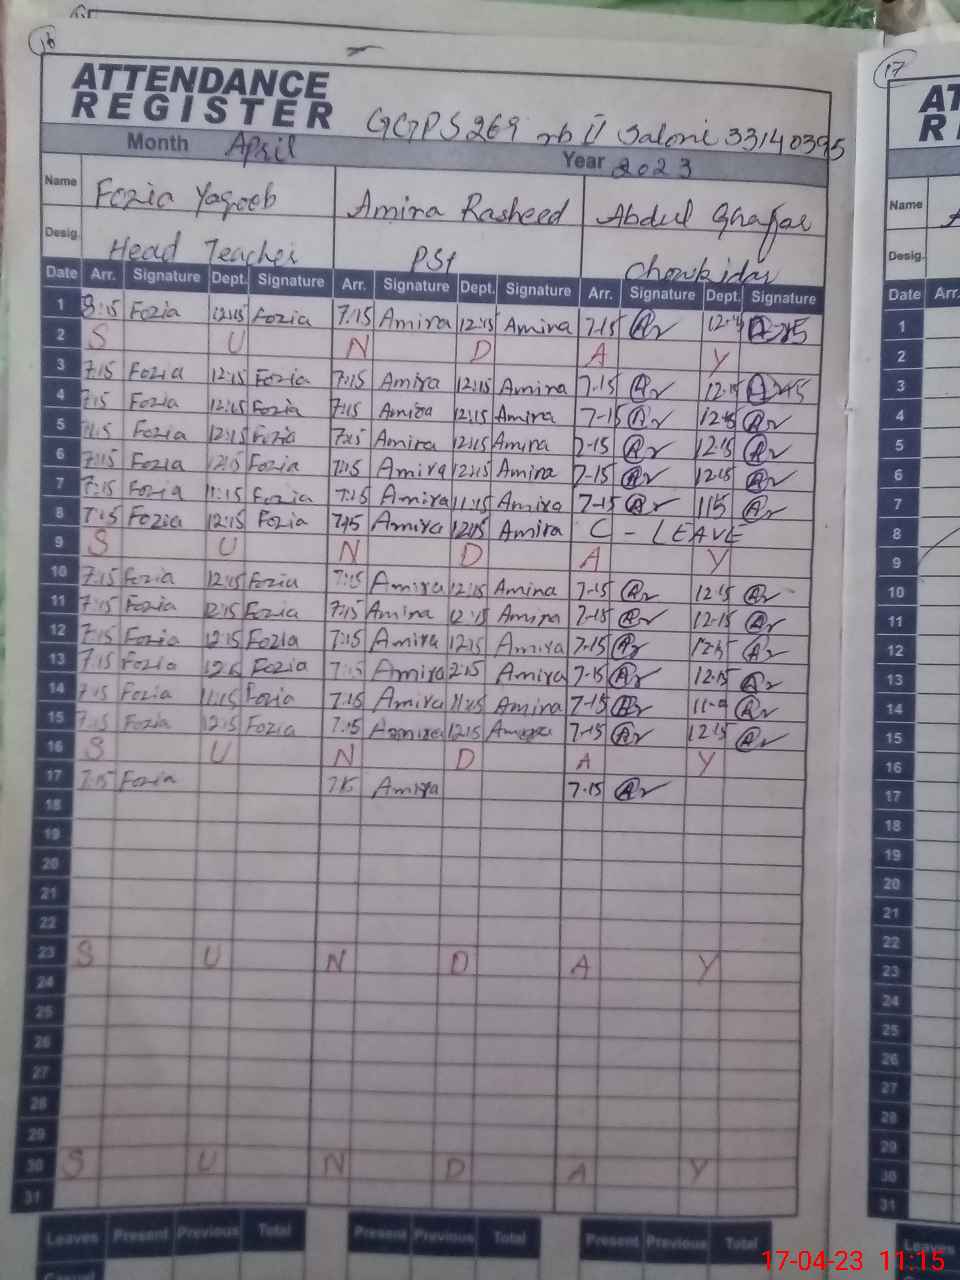 16
ATTENDANCE
REGISTER
GGPS 269 rb II Saloni 33140395
Month April Year 2023
Name Fozia Yaqoob Amira Rasheed Abdul Ghafar
Desig. Head Teacher PST Chowkidar
Date Arr. Signature Dept. Signature Arr. Signature Dept. Signature Arr. Signature Dept. Signature
1 8:15 Fozia 12:15 Fozia 7:15 Amira 12:15 Amira 7-15
2 S U N D A Y
3 7:15 Fozia 12:15 Fozia 7:15 Amira 12:15 Amira 7-15 12-15
4 7:15 Fozia 12:15 Fozia 7:15 Amira 12:15 Amira 7-15
5 Fozia 12:15 Fozia 7:15 Amira 12:15 Amira 7-15 12-15
6 7:15 Fozia 12:15 Fozia 7:15 Amira 12:15 Amira 7-15 12-15
7 7:15 Fozia 11:15 Fozia 7:15 Amira 11:15 Amira 7-15
8 7:15 Fozia 12:15 Fozia 7:15 Amira 12:15 Amira C - LEAVE
9 S U N D A Y
10 7:15 Fozia 12:15 Fozia 7:15 Amira 12:15 Amina 7-15 12-15
11 7:15 Fozia 12:15 Fozia 7:15 Amina 12:15 Amina 7-15 12-15
12 7:15 Fozia 12:15 Fozia 7:15 Amira 12:15 Amira 7-15
13 7:15 Fozia Fozia 7:15 Amira 2:15 Amira 7-15 12-15
14 7:15 Fozia 11:15 Fozia 7:15 Amira 11:15 Amira 7-15
15 7:15 Fozia 12:15 Fozia 7:15 Amira 12:15 7-15 12-15
16 S U N D A Y
17 7:15 Fozia 7:15 Amira 7-15
18
19
20
21
22
23 S U N D A Y
24
25
26
27
28
29
30 S U N D A Y
31
Leaves Present Previous Total Present Previous Total Present Previous Total
Casual
17
AT
R
Name
Desig.
Date Arr.
1
2
3
4
5
6
7
8
9
10
11
12
13
14
15
16
17
18
19
20
21
22
23
24
25
26
27
28
29
30
31
Leaves
17-04-23 11:15